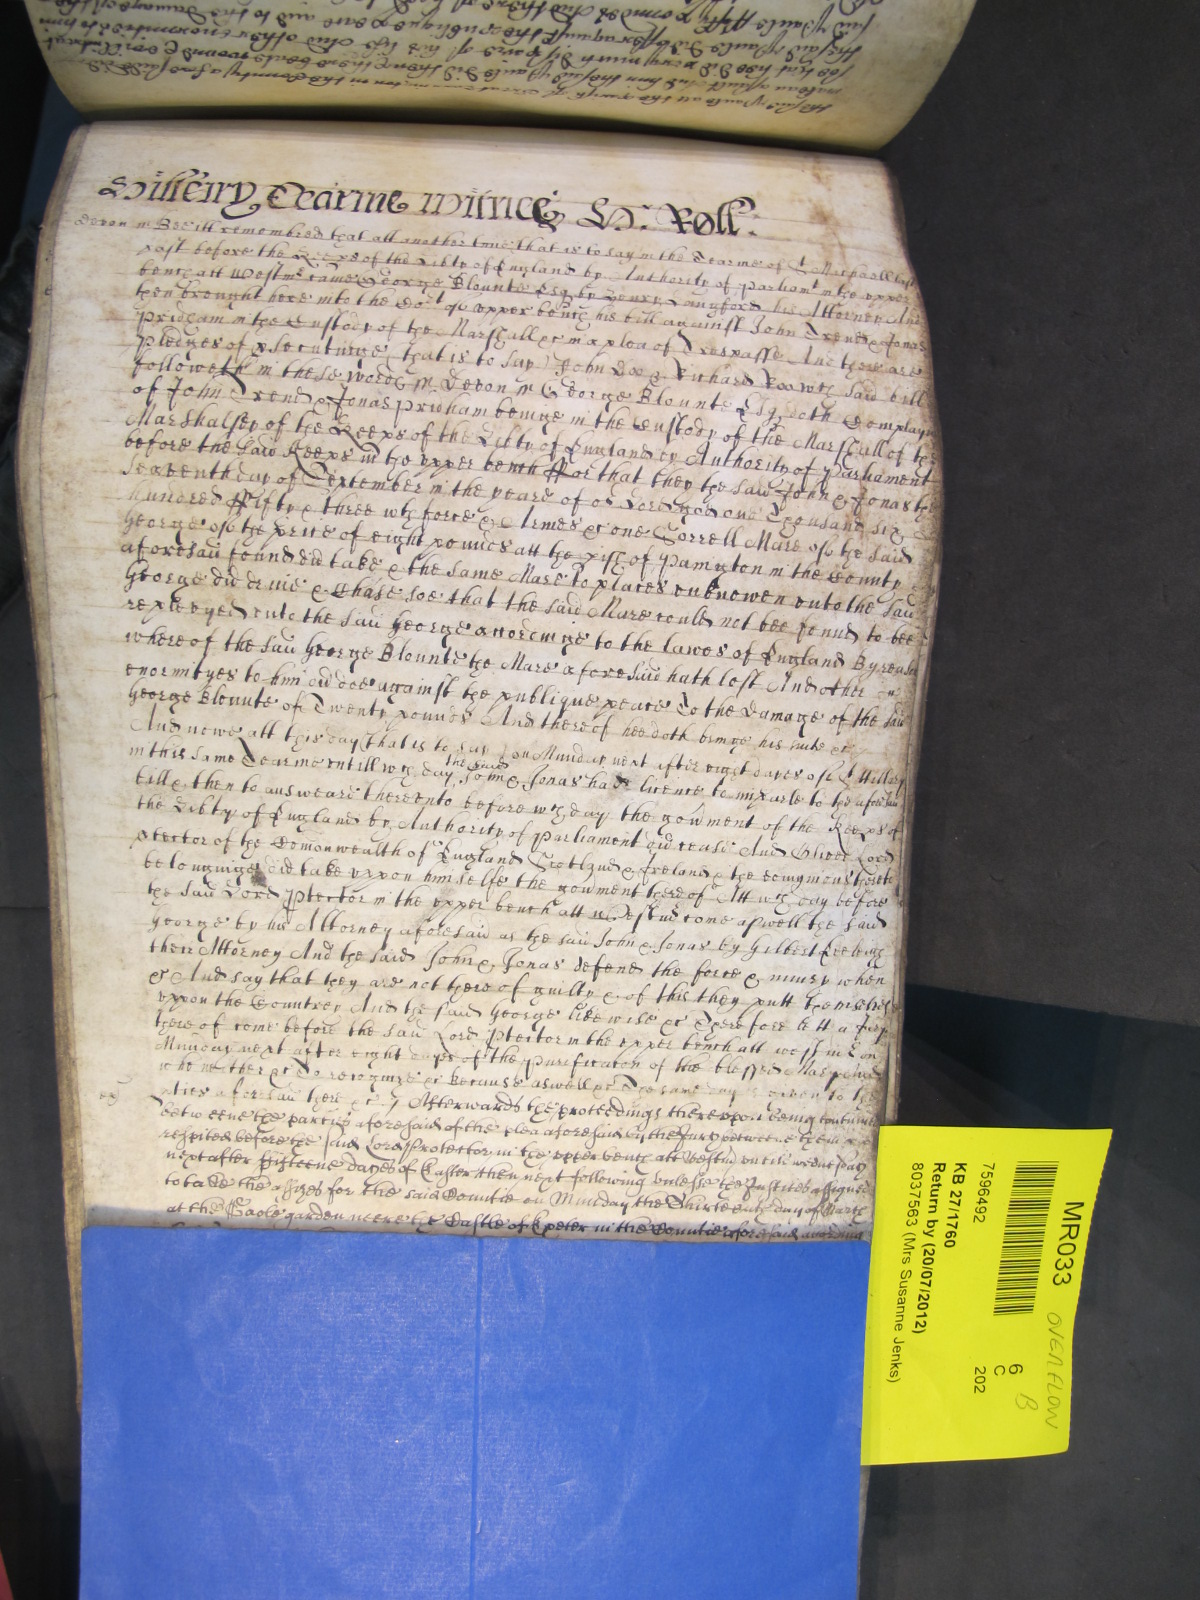 Hillary Tearme Witnes H: Roll:
Devon ss Bee itt remembred that att another time that is to say in the Tearme of St Michaell last
past before the Keeps of the Libty of England by Authority of parliamt in the upper
bench att Westmr came George Blounte Esq by Henry Langford his Attorney And
then brought here into the Cort of upper bench his bill against John Trend & Jonas
Pridham in the Custody of the Marshall &c in a plea of Trespasse And there are
pledges of psecutinge (that is to say) John Doe & Richard Roo wch said bill
followeth in these words ss Devon ss George Blounte Esq doth Complayne
of John Trend & Jonas Pridham beinge in the Custody of the Marshall of the
Marshalsey of the Keeps of the Libty of England by Authority of Parliament
before the said Keeps in the upper bench ffor that they the said John & Jonas the
seaventh day of September in the yeare of or Lord god one Thousand six
hundred ffifty & three wth force & Armes &c one Sorrell Mare of the said
George of the price of eight pounds att the pish of Paington in the County
aforesaid found did take & the same Mare to places unknowen unto the said
George did drive & Chase soe that the said Mare could not bee found to bee
replevyed unto the said George accordinge to the lawes of England By reason
whereof the said George Blounte the Mare aforesaid hath lost And other
enormityes to him did doe against the publique peace To the Damage of the said
George Blounte of Twenty pounds And thereof hee doth bringe his suite &c
And nowe att this day (that is to say) on Munday next after eight dayes of St Hillary
in this same Tearme untill wch day the said John & Jonas had licence to imparle to the aforesaid
bill & then to answeare thereunto before wch day the govment of the Keeps of
the Libty of England by Authority of Parliament did cease And Oliver Lord
ptector of the Comonwealth of England Scotland & Ireland & the dominions thereto
belonginge did take uppon himselfe the govment thereof Att wch day before
the said Lord Ptector in the upper bench att Westm come aswell the said
George by his Attorney aforesaid as the said John & Jonas by Gilbert
their Attorney And the said John & Jonas defend the force & iniury when
&c And say that they are not thereof guilty & of this they putt themselves
uppon the Countrey And the said George likewise &c Therefore lett a Jury
thereof come before the said Lord Ptector in the upper bench att Westm on
Munday next after eight dayes of the Purificaton of the blessed Mary
who neither &c To recognize &c Because aswell &c The same day is given to the
pties aforesaid there &c Afterwards the proceedings thereupon being continued
betweene the parties aforesaid of the plea aforesaid by the Jury betweene them
respited before the said Lord Protector in the upper bench att Westm until Wednesday
next after fifteene dayes of Easter then next following unlesse the Justices assigned
to take the assizes for the said Countie on Munday the Thirteenth day of March
at the Gaole garden neere the Castle of Exeter in the Countie aforesaid according
MR033
OVERFLOW
B
7596492
6
C
202
KB 27/1760
Return by (20/07/2012)
8037563 (Mrs Susanne Jenks)